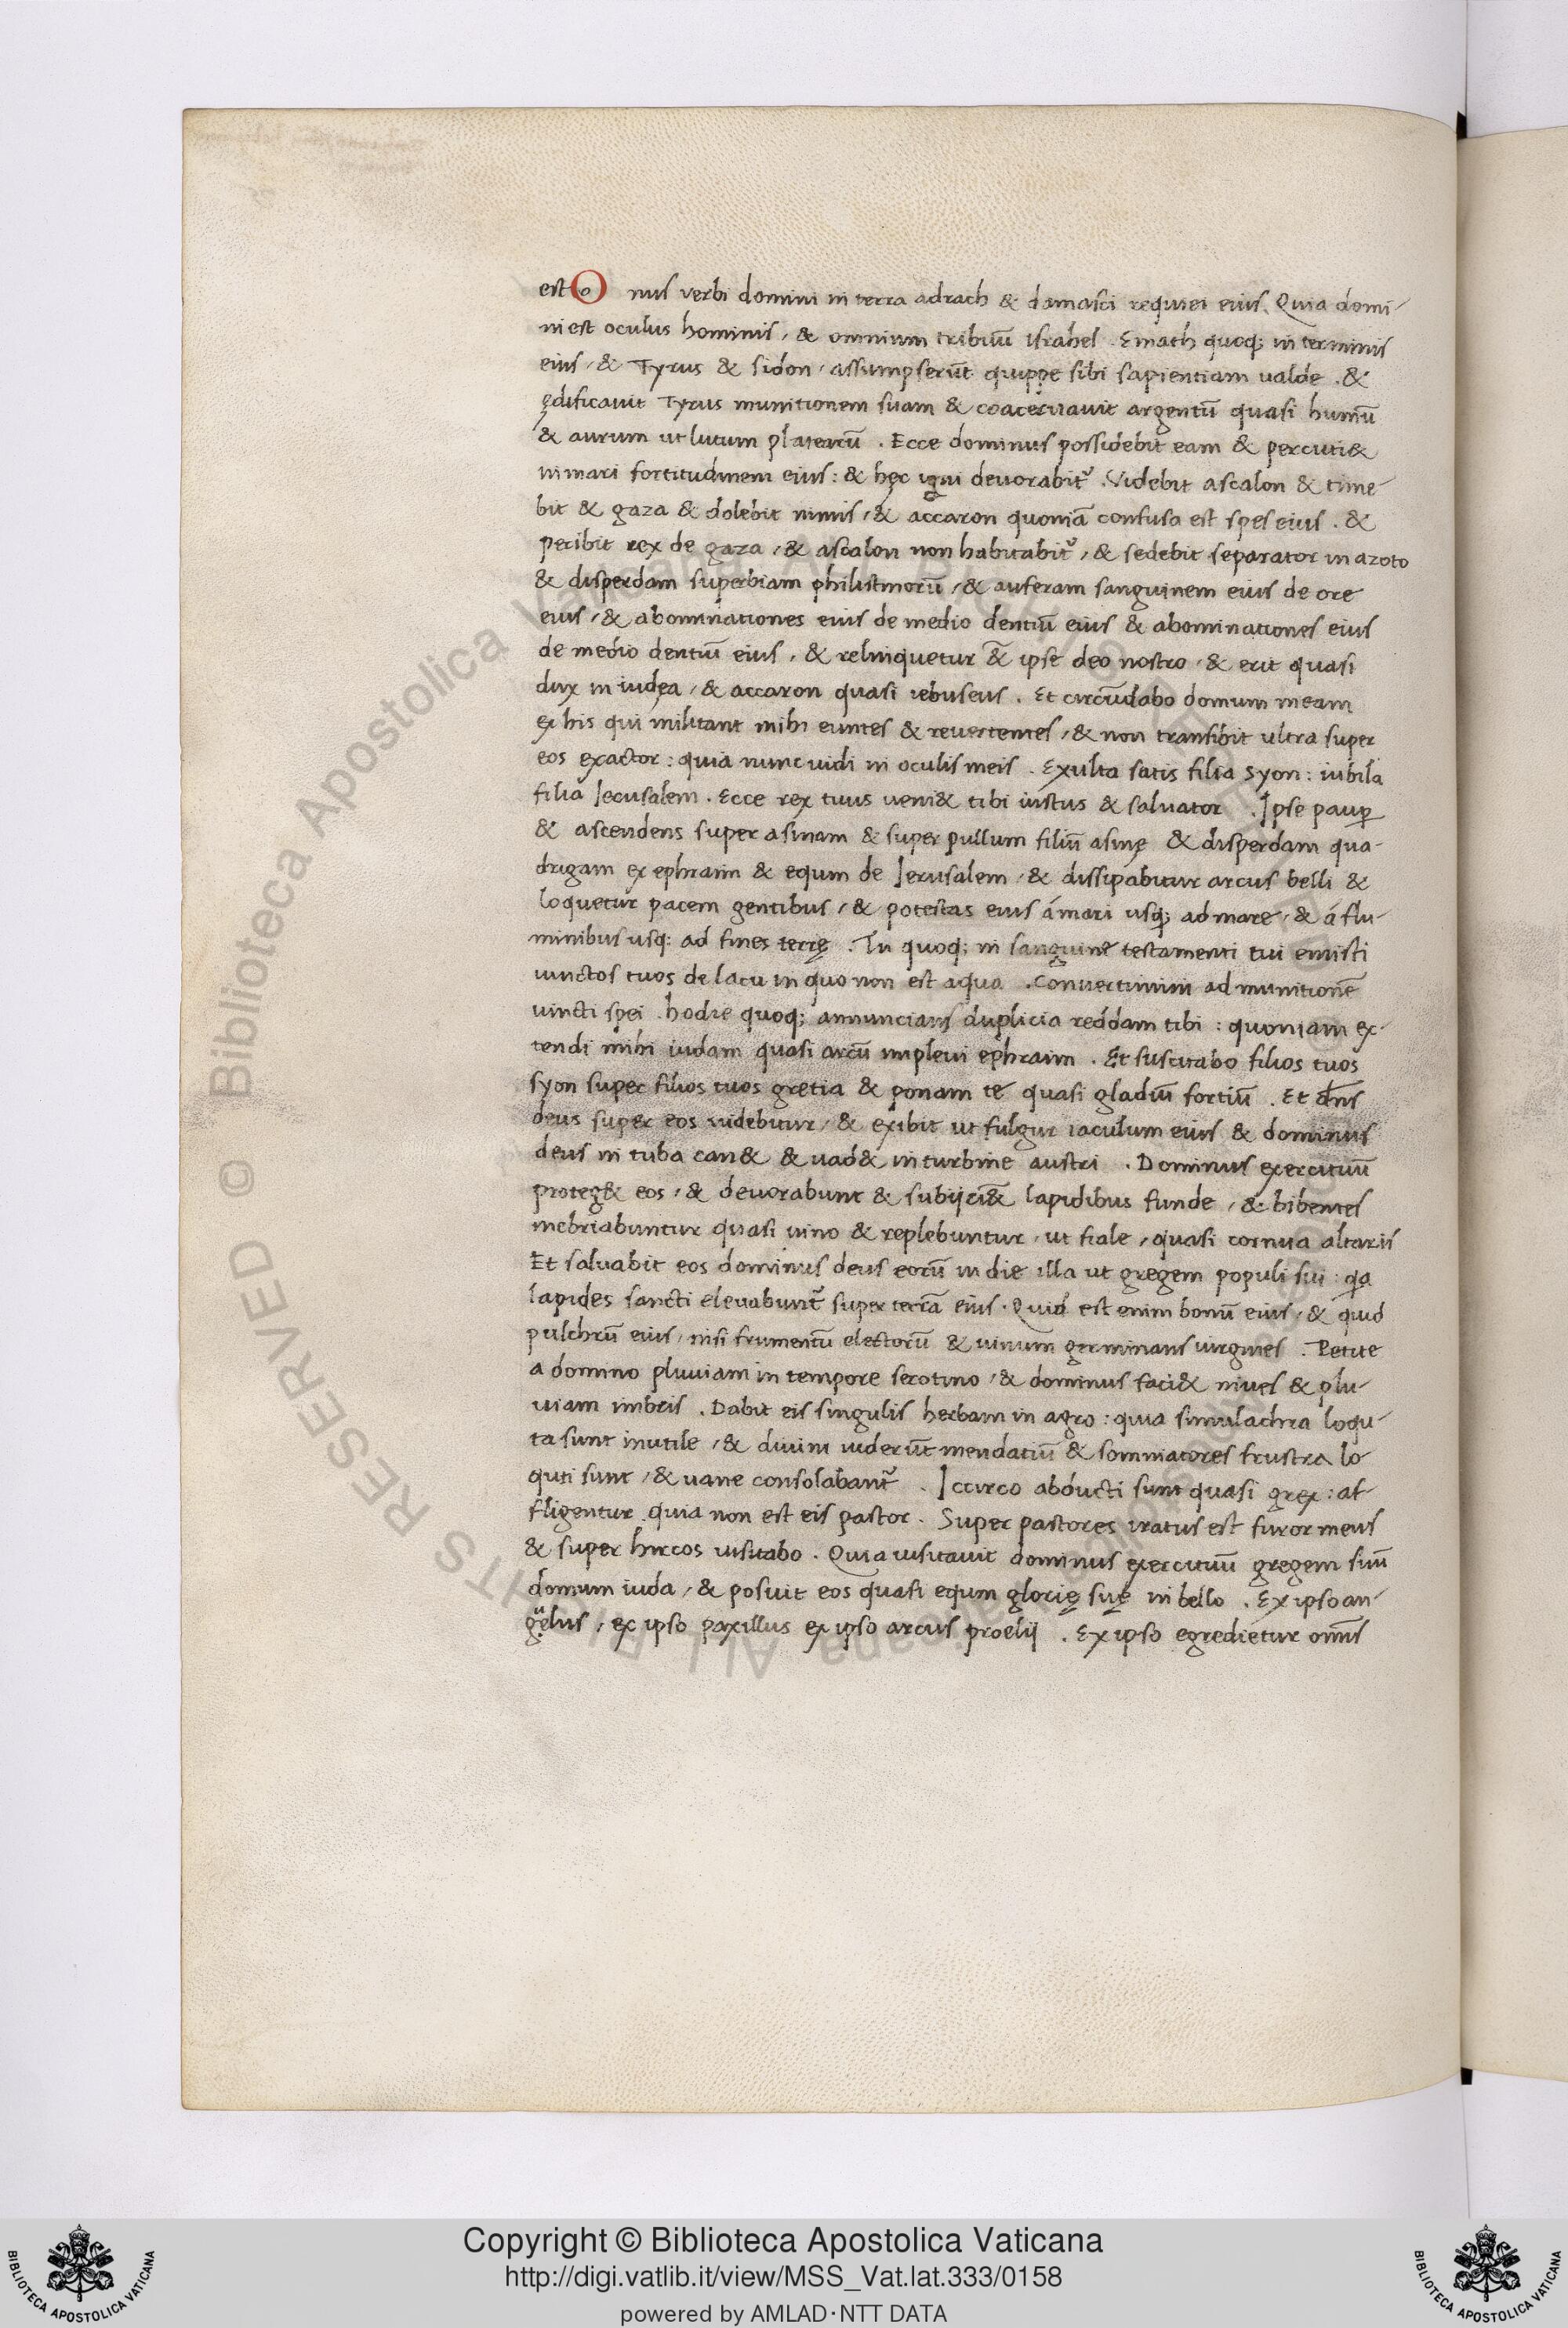 est O nus verbi domini in terra adrach & damasci requiei eius. Quia domi-
ni est oculus hominis, & omnium tribuū israhel. Emath quoq; in terminis
eius, & Tyrus & sidon, assumpserūt quippe sibi sapientiam ualde. &
ędificauit Tyrus munitionem suam & coaceruauit argentū quasi humū
& aurum ut lutum platearū. Ecce dominus possidebit eam & percuti&
in mari fortitudinem eius: & hęc igni deuorabit᷑. Videbit ascalon & time-
bit & gaza & dolebit nimis, & accaron quoniā confusa est spes eius. &
peribit rex de gaza, & ascalon non habitabit᷑, & sedebit separator in azoto
& disperdam superbiam philistinorū, & auferam sanguinem eius de ore
eius, & abominationes eius de medio dentiū eius & abominationes eius
de medio dentiū eius, & relinquetur &̄ ipse deo nostro, & erit quasi
dux in iudęa, & accaron quasi iebuseus. Et circūdabo domum meam
ex his qui militant mihi euntes & reuertentes, & non transibit ultra super
eos exactor: quia nunc uidi in oculis meis. Exulta satis filia syon: iubila
filia Jerusalem. Ecce rex tuus ueni& tibi iustus & saluator. Ipse paup̲
& ascendens super asinam & super pullum filiū asinę & disperdam qua-
drigam ex ephraim & equm de Jerusalem, & dissipabitur arcus belli &
loquetur pacem gentibus, & potestas eius á mari usq; ad mare, & á flu-
minibus usq; ad fines terrę. Tu quoq; in sanguine testamenti tui emisti
uinctos tuos de lacu in quo non est aqua. Conuertimini ad munitionē
uincti spei. hodie quoq; annuncians duplicia reddam tibi: quoniam ex-
tendi mihi iudam quasi arcū impleui ephraim. Et suscitabo filios tuos
syon super filios tuos gretia & ponam te quasi gladiū fortiū. Et dn̄s
deus super eos uidebitur, & exibit ut fulgur iaculum eius & dominus
deus in tuba can& & uad& in turbine austri. Dominus exercituū
proteg& eos, & deuorabunt & subijci&̄ lapidibus funde, & bibentes
inebriabuntur quasi uino & replebuntur, ut fiale, quasi cornua altaris
Et saluabit eos dominus deus eorū in die illa ut gregem populi sui: q̲a
lapides sancti eleuabunt᷑ super terrā eius. Quid est enim bonū eius, & quid
pulchrū eius, nisi frumentū electorū & uinum germinans uirgines. Petite
a domino pluuiam in tempore serotino, & dominus faci& niues & plu-
uiam imbris. Dabit eis singulis herbam in agro: quia simulachra loqu-
ta sunt inutile, & diuini uiderūt mendatiū & somniatores frustra lo
quti sunt, & uane consolabant᷑. Iccirco abducti sunt quasi grex: af-
fligentur quia non est eis pastor. Super pastores iratus est furor meus
& super hircos uisitabo. Quia uisitauit dominus exercituū gregem suū
domum iuda, & posuit eos quasi equm glorię suę in bello. Ex ipso an-
gulus, ex ipso paxillus ex ipso arcus proelij. Ex ipso egredietur om̄is
Copyright © Biblioteca Apostolica Vaticana
http://digi.vatlib.it/view/MSS_Vat.lat.333/0158
powered by AMLAD·NTT DATA
BIBLIOTECA APOSTOLICA VATICANA
BIBLIOTECA APOSTOLICA VATICANA